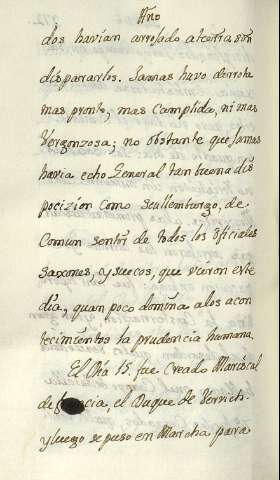 Año
dos havian arrojado a tierra sin
dispararlos. Jamas huvo derrota
mas pronto, mas Cumplida, ni mas
Vergonzosa; no obstante que Jamas
havia echo General tam buena dis
pocizion como Scullemburgo, de
Comun sentir de todos los oficiales
saxones, y suecos, que vieron este
dia, quan poco domina a los acon
tecimientos la prudencia humana.
El Dia 15. fue Creado Mariscal
de Francia, el Duque de Vervich.
y luego se puso en Marcha para